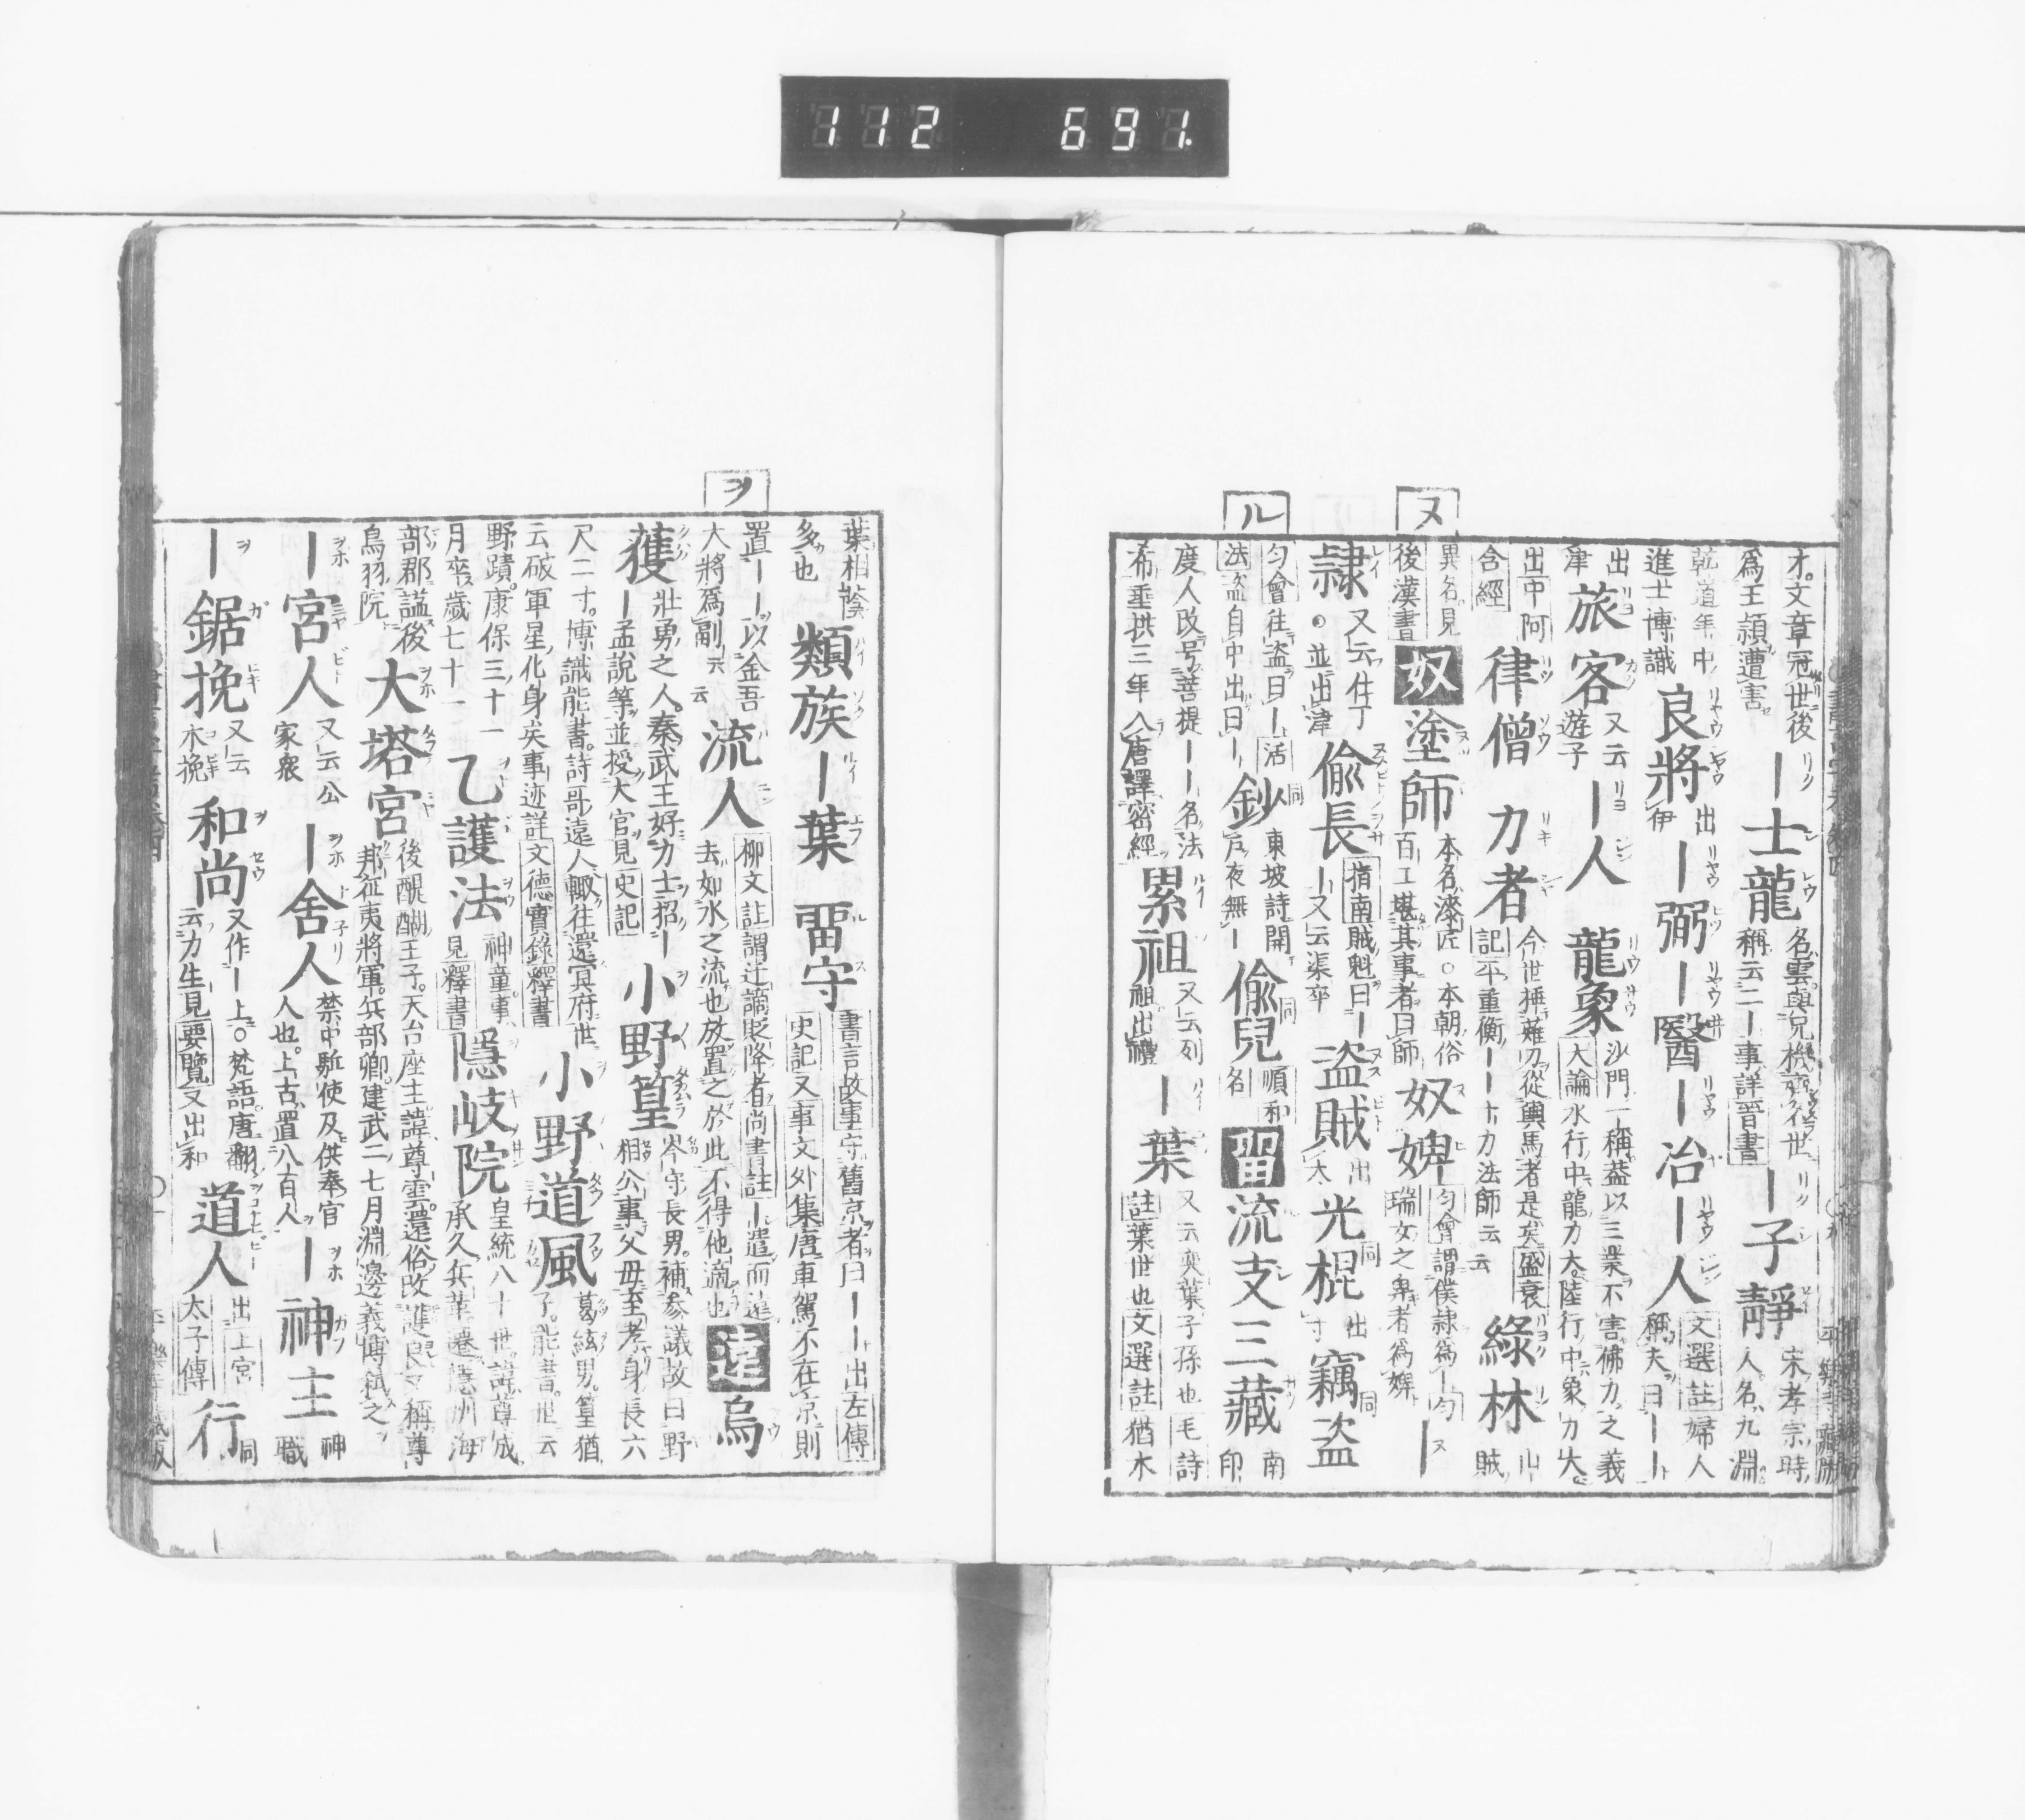 112 691.
ヌ
ル
才文章冠世後爲王穎遭害 ―士龍 名雲與兄機齊名世稱云二―事詳晉書 ―子靜 宋孝宗時人名九淵
乾道年中進士博識 良將 出伊 ―弼 ―醫 ―冶 ―人 文選註婦人稱夫曰――
出津 旅客 又云遊子 ―人 龍象 沙門一稱益以三業不害佛力之義大論水行中龍力大陸行中象力大
出中阿含經 律僧 力者 今世挿薙刀從輿馬者是矣盛衰記平重衡――力法師云云 綠林 山賊
異名見後漢書 奴 塗師 本名漆匠○本朝俗百工堪其事者曰師 奴婢 匀會謂僕隷爲―匀瑞女之卑者爲婢 ―
隷 又云仕丁並出津 偸長 指南賊魁曰―又云渠卒 盜賊 出太 光棍 同出寸 竊盜 同
匀會往盜曰―活法盜自中出曰― 鈔 同 東坡詩開戸夜無― 偸兒 同順和名 畱 流支三藏 南印
度人改号菩提――名法希垂拱三年入唐譯密經 累祖 又云列祖出禮 ―葉 又云奕葉子孫也毛詩註葉世也文選註猶木
ヲ
葉相蔭多也 類族 ―葉 畱守 書言故事守舊京者曰――出左傳史記又事文外集唐車駕不在京則
置――以金吾大將爲副云云 流人 柳文註謂迁謫貶降者尚書註―遣而遠去如水之流也放置之於此不得他適也 遠 烏
獲 壯勇之人秦武王好力士招―孟說等並授大官見史記 小野篁 岑守長男補參議故曰野相公事父母至孝身長六
尺二寸博識能書詩哥遠人輙往還冥府世云破軍星化身矣事迹詳文德實錄釋書 小野道風 葛絃男篁猶子能書世云
野蹟康保三十一月卒歳七十一 乙護法 神童事見釋書 隱岐院 皇統八十世諱尊成承久兵革遷隱州海
部郡謚後鳥羽院 大塔宮 後醍醐王子天台座主諱尊雲還俗改護良又稱尊邦征夷將軍兵部卿建武二七月淵邊義博弑之
―宮人 又云公家衆 ―舍人 禁中駈使及供奉官人也上古置八百人 ―神主 神職
―鋸挽 又云木挽 和尚 又作―上○梵語唐翻云力生見要覽又出和 道人 出上宮太子傳 行 同